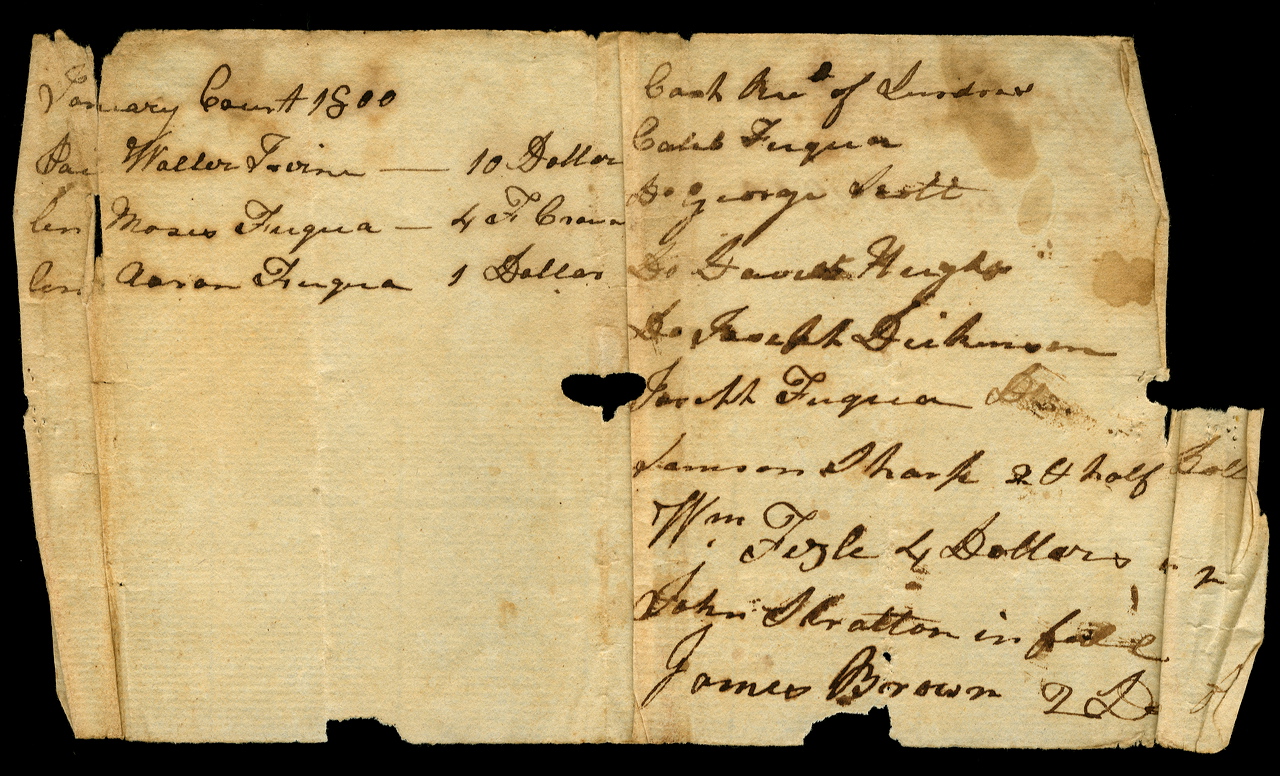 January Court 1800
Walter Irvine — 10 Dollar
Moses Fuqua — 4 F Crown
Aaron Fuqua 1 Dollar
Cash Recd of Sundries
Caleb Fuqua
Do George Scott
Do David Hughs
Do Joseph Dickinson
Joseph Fuqua
Samson Sharp 2 & half Doll
Wm Fezle 4 Dollars
John Stratton in full
James Brown 2 Do